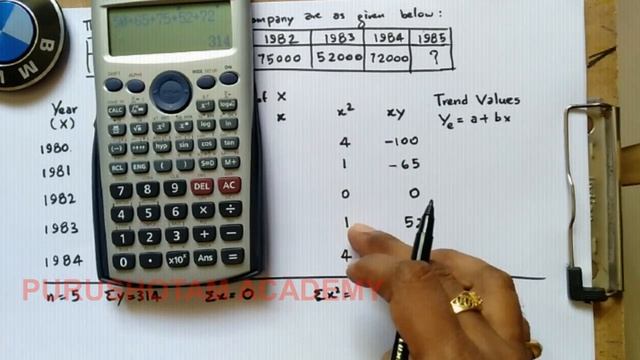 ompany are as given below :
1982 1983 1984 1985
75000 52000 72000 ?
50+65+75+52+72
314
SHIFT ALPHA MODE ON
CALC
log
ln
hyp sin cos tan
RCL ENG ( ) S⇔D M+
7 8 9 DEL AC
4 5 6 × ÷
1 2 3 + −
0 • ×10ˣ Ans =
Year of X Trend Values
(X) x x² xy Yₑ = a + bx
1980. 4 −100
1981 1 −65
1982 0 0
1983 1 52
1984 4
PURUSHOTAM ACADEMY
n = 5 Σy = 314 Σx = 0 Σx² =